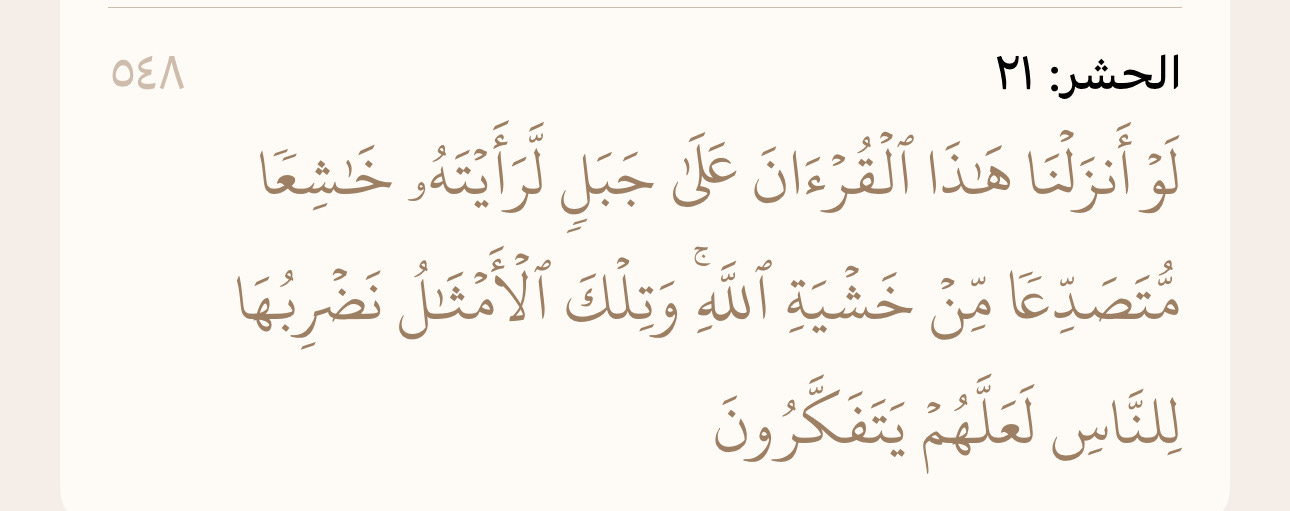 الحشر: ٢١
٥٤٨
لَوۡ أَنزَلۡنَا هَـٰذَا ٱلۡقُرۡءَانَ عَلَىٰ جَبَلࣲ لَّرَأَیۡتَهُۥ خَـٰشِعࣰا
مُّتَصَدِّعࣰا مِّنۡ خَشۡیَةِ ٱللَّهِۚ وَتِلۡكَ ٱلۡأَمۡثَـٰلُ نَضۡرِبُهَا
لِلنَّاسِ لَعَلَّهُمۡ یَتَفَكَّرُونَ